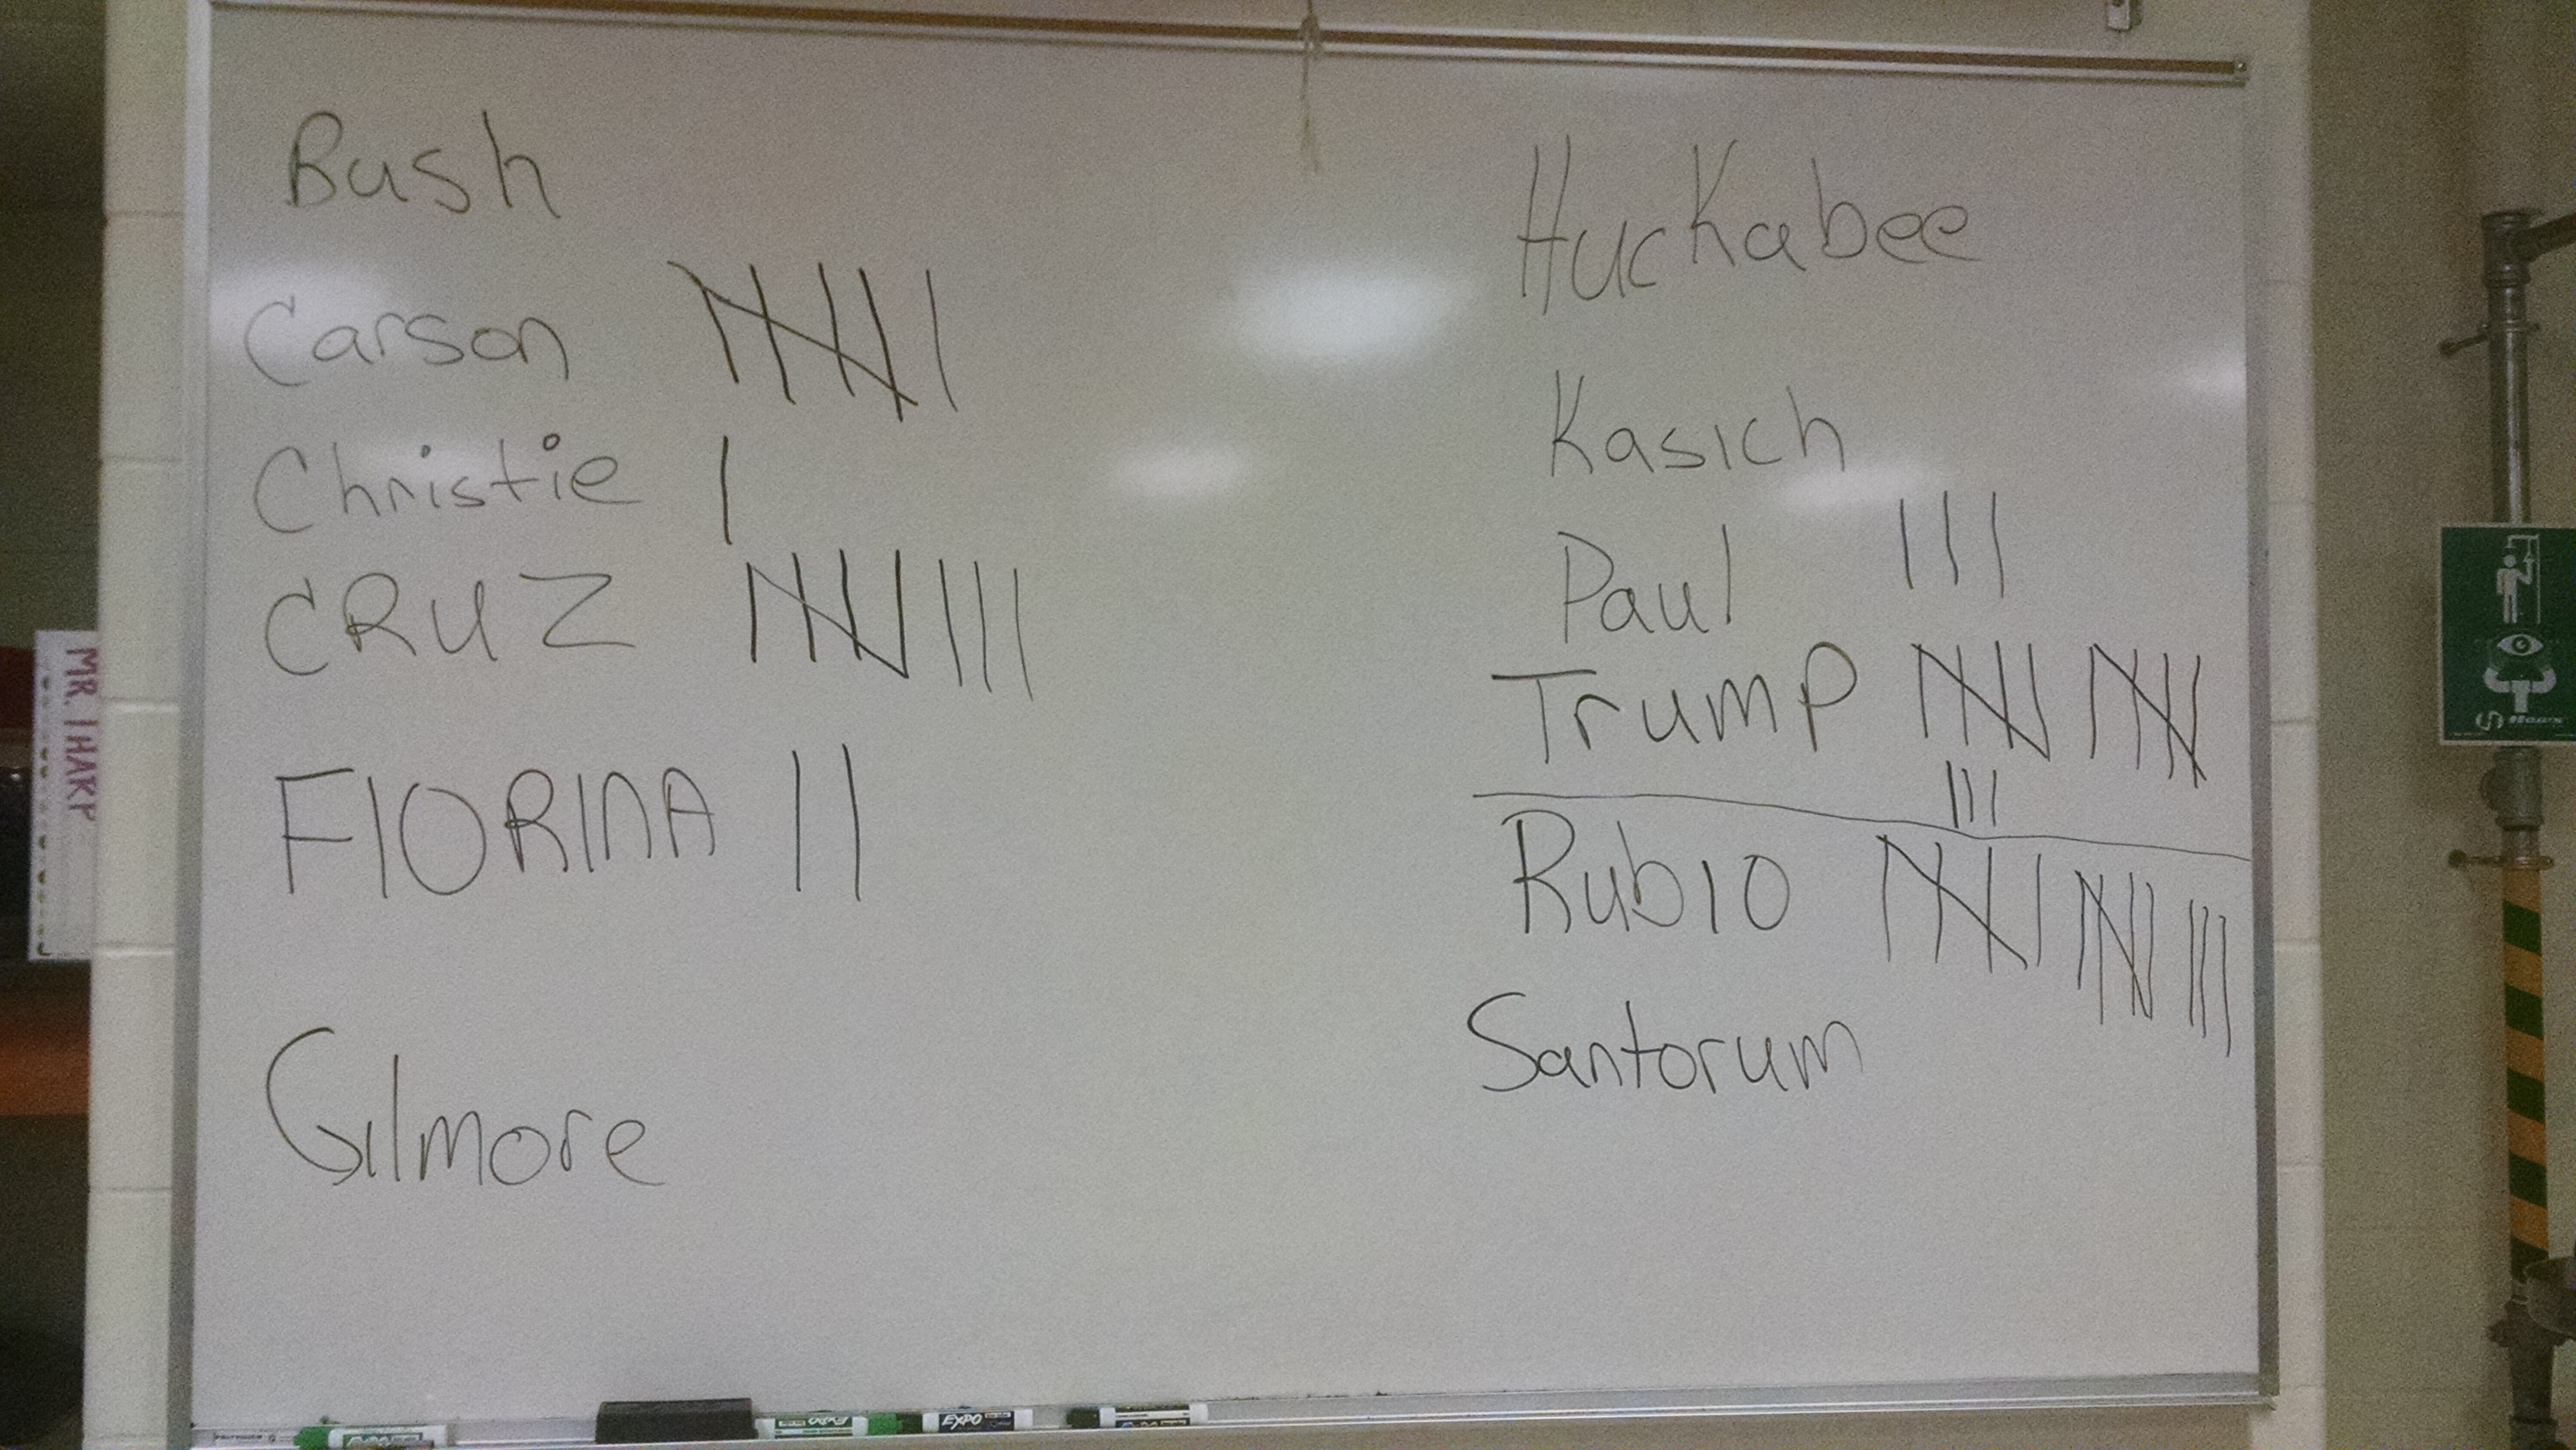 Bush
Carson 卌 |
Christie |
CRUZ 卌 |||
FIORINA ||
Gilmore
Huckabee
Kasich
Paul |||
Trump 卌 卌
|||
Rubio 卌 卌 |||
Santorum
EXPO